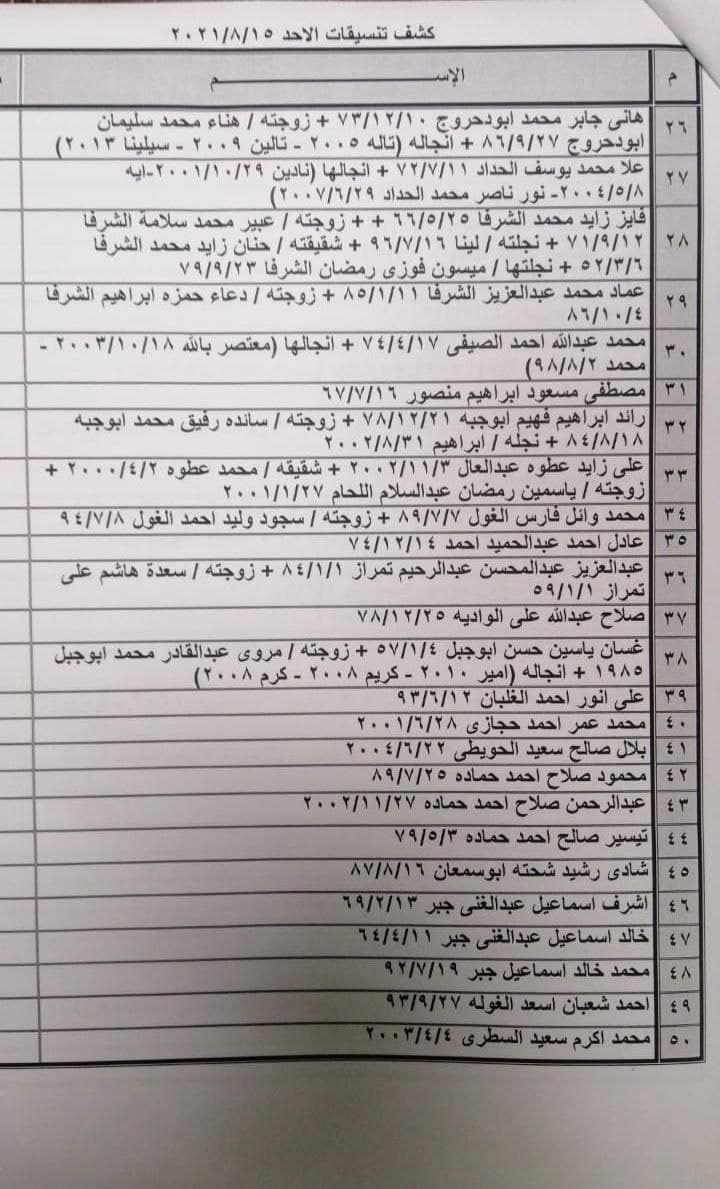 كشف تنسيقات الاحد ٢٠٢١/٨/١٥
م الإســـــــــــــم
٢٦ هانى جابر محمد ابودحروج ٧٣/١٢/١٠ + زوجته / هناء محمد سليمان
ابودحروج ٨٦/٩/٢٧ + انجاله (تاله ٢٠٠٥ - تالين ٢٠٠٩ - سيلينا ٢٠١٣)
٢٧ علا محمد يوسف الحداد ٧٢/٧/١١ + انجالها (نادين ٢٠٠١/١٠/٢٩-ايه
٢٠٠٤/٥/٨- نور ناصر محمد الحداد ٢٠٠٧/٦/٢٩)
٢٨ فايز زايد محمد الشرفا ٦٦/٥/٢٥ + + زوجته / عبير محمد سلامة الشرفا
٧١/٩/١٢ + نجلته / لينا ٩٦/٧/١٦ + شقيقته / حنان زايد محمد الشرفا
٥٢/٣/٦ + نجلتها / ميسون فوزى رمضان الشرفا ٧٩/٩/٢٣
٢٩ عماد محمد عبدالعزيز الشرفا ٨٥/١/١١ + زوجته / دعاء حمزه ابراهيم الشرفا
٨٦/١٠/٤
٣٠ محمد عبدالله احمد الصيفى ٧٤/٤/١٧ + انجالها (معتصر بالله ٢٠٠٣/١٠/١٨ -
محمد ٩٨/٨/٢)
٣١ مصطفى مسعود ابراهيم منصور ٦٧/٧/١٦
٣٢ رائد ابراهيم فهيم ابوجبه ٧٨/١٢/٢١ + زوجته / سانده رفيق محمد ابوجبه
٨٤/٨/١٨ + نجله / ابراهيم ٢٠٠٢/٨/٣١
٣٣ على زايد عطوه عبدالعال ٢٠٠٢/١١/٣ + شقيقه / محمد عطوه ٢٠٠٠/٤/٢ +
زوجته / ياسمين رمضان عبدالسلام اللحام ٢٠٠١/١/٢٧
٣٤ محمد وائل فارس الغول ٨٩/٧/٧ + زوجته / سجود وليد احمد الغول ٩٤/٧/٨
٣٥ عادل احمد عبدالحميد احمد ٧٤/١٢/١٤
٣٦ عبدالعزيز عبدالمحسن عبدالرحيم تمراز ٨٤/١/١ + زوجته / سعدة هاشم على
تمراز ٥٩/١/١
٣٧ صلاح عبدالله على الواديه ٧٨/١٢/٢٥
٣٨ غسان ياسين حسن ابوجبل ٥٧/١/٤ + زوجته / مروى عبدالقادر محمد ابوجبل
١٩٨٥ + انجاله (امير ٢٠١٠ - كريم ٢٠٠٨ - كرم ٢٠٠٨)
٣٩ على انور احمد الغلبان ٩٣/٦/١٢
٤٠ محمد عمر احمد حجازى ٢٠٠١/٦/٢٨
٤١ بلال صالح سعيد الحويطى ٢٠٠٤/٦/٢٢
٤٢ محمود صلاح احمد حماده ٨٩/٧/٢٥
٤٣ عبدالرحمن صلاح احمد حماده ٢٠٠٢/١١/٢٧
٤٤ تيسير صالح احمد حماده ٧٩/٥/٣
٤٥ شادى رشيد شحته ابوسمعان ٨٧/٨/١٦
٤٦ اشرف اسماعيل عبدالغنى جبر ٦٩/٢/١٣
٤٧ خالد اسماعيل عبدالغنى جبر ٦٤/٤/١١
٤٨ محمد خالد اسماعيل جبر ٩٢/٧/١٩
٤٩ احمد شعبان اسعد الغوله ٩٣/٩/٢٧
٥٠ محمد اكرم سعيد السطرى ٢٠٠٣/٤/٤